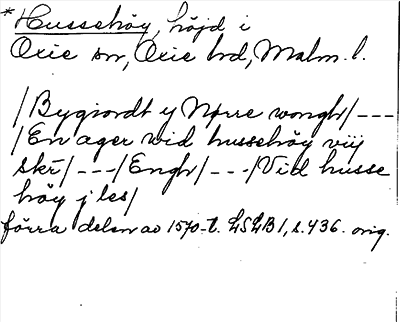 * Hussehöy, höjd i
Oxie sn, Oxie hd, Malm. l.
/Bygiordt y Nørre wongh/---
/En ager wid hussehöy viij
skr/---/Engh/---/Vid husse
höy j les/
förra delen av 1570-t. LSLB 1, s. 436. orig.